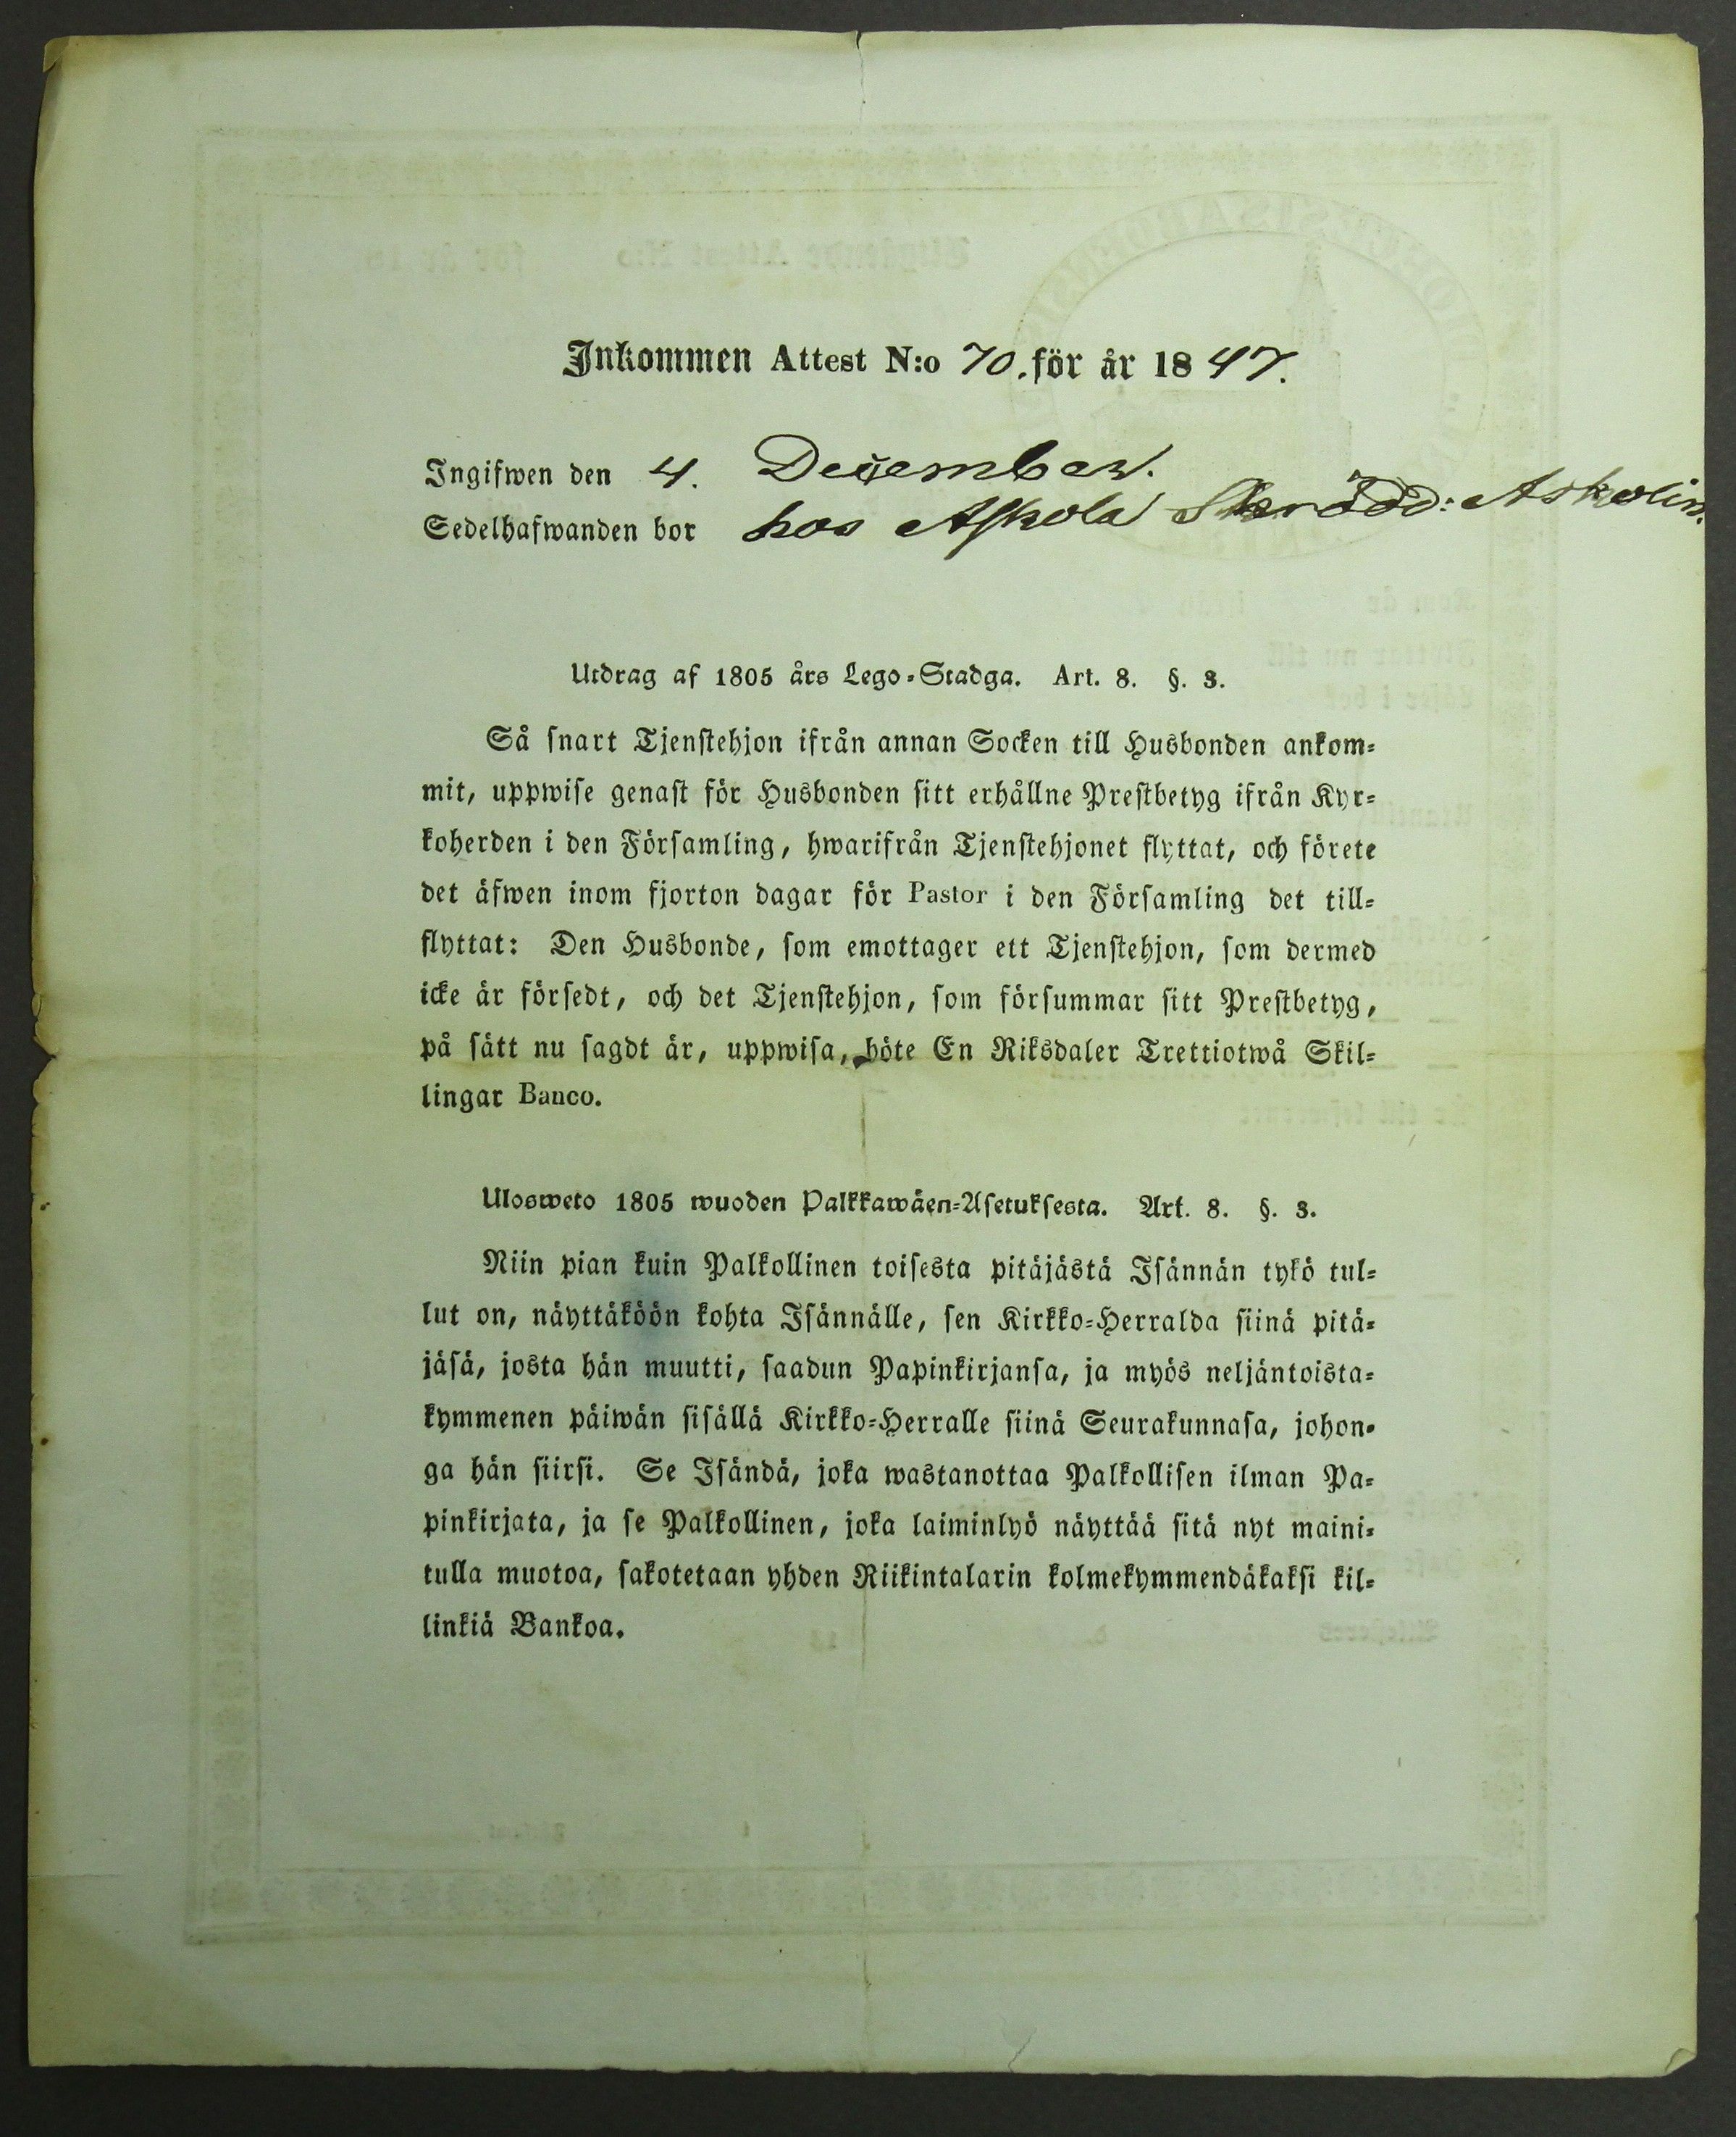 Inkommen Attest N:o 70. för år 1847.
Ingifwen den 4. December.
Sedelhafwanden bor hos Askola Skrädd: Askolin.
Utdrag af 1805 års Lego-Stadga. Art. 8. §. 3.
Så snart Tjenstehjon ifrån annan Socken till Husbonden ankom-
mit, uppwise genast för Husbonden sitt erhållne Prestbetyg ifrån Kyr-
koherden i den Församling, hwarifrån Tjenstehjonet flyttat, och förete
det äfwen inom fjorton dagar för Pastor i den Församling det till-
flyttat: Den Husbonde, som emottager ett Tjenstehjon, som dermed
icke är försedt, och det Tjenstehjon, som försummar sitt Prestbetyg,
på sätt nu sagdt är, uppwisa, böte En Riksdaler Trettiotwå Skil-
lingar Banco.
Ulosweto 1805 wuoden Palkkawäen-Asetuksesta. Art. 8. §. 3.
Niin pian kuin Palkollinen toisesta pitäjästä Isännän tykö tul-
lut on, näyttäköön kohta Isännälle, sen Kirkko-Herralda siinä pitä-
jäsä, josta hän muutti, saadun Papinkirjansa, ja myös neljäntoista-
kymmenen päiwän sisällä Kirkko-Herralle siinä Seurakunnasa, johon-
ga hän siirsi. Se Isändä, joka wastanottaa Palkollisen ilman Pa-
pinkirjata, ja se Palkollinen, joka laiminlyö näyttää sitä nyt maini-
tulla muotoa, sakotetaan yhden Riikintalarin kolmekymmendäkaksi kil-
linkiä Bankoa.